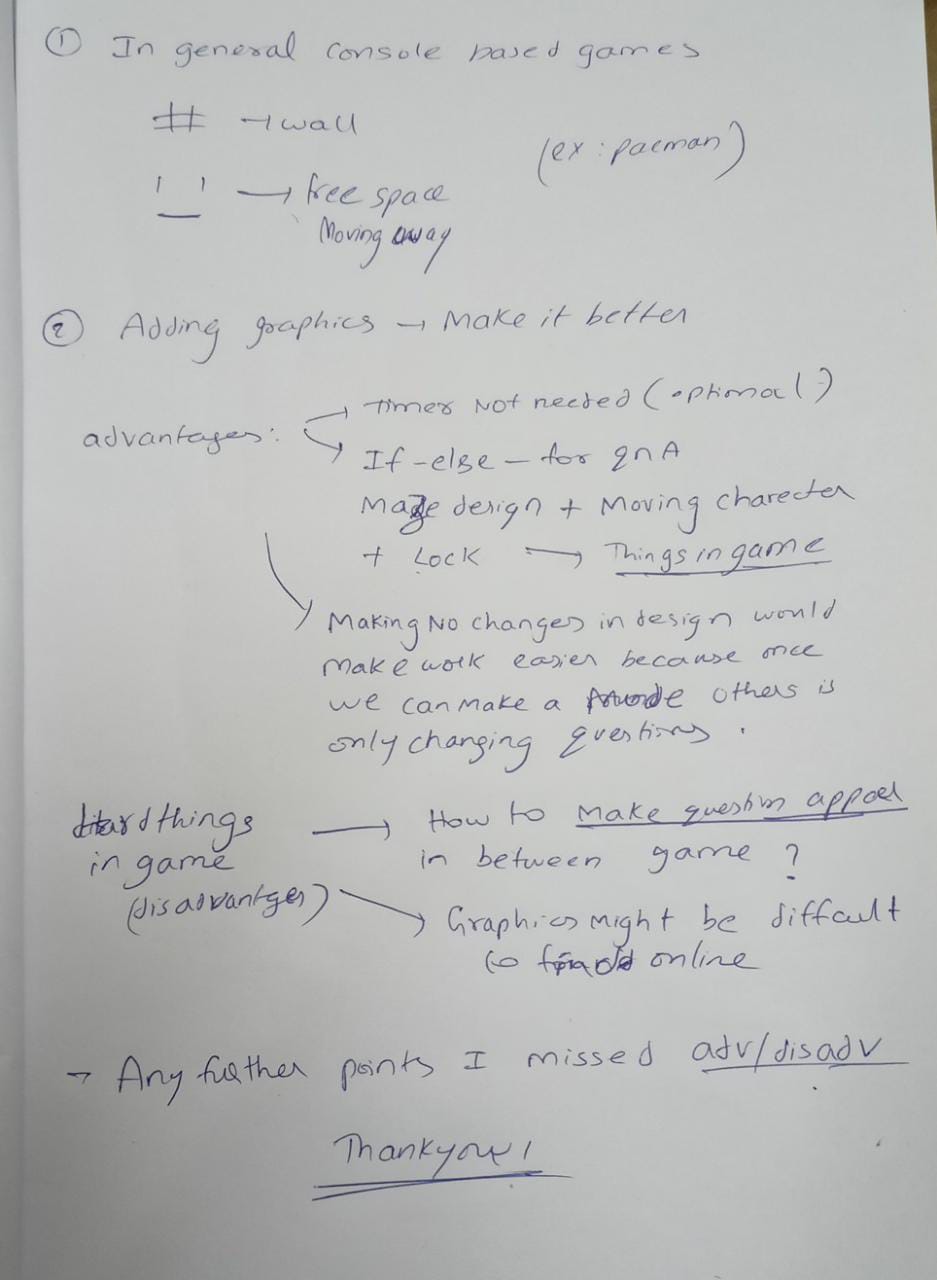 ① In general console based games
# → wall
(ex : pacman)
' _ ' → free space
Moving away
② Adding graphics → Make it better
advantages: → Timer Not needed (optional)
→ If-else – for QnA
Maze design + Moving charecter
+ Lock → Things in game
→ Making No changes in design would
make work easier because once
we can make a others is
only changing questions .
Hard things
in game
(disadvantges)
→ How to make question appear
in between game ?
→ Graphics might be difficult
to find online
→ Any further points I missed adv/disadv
Thankyou!